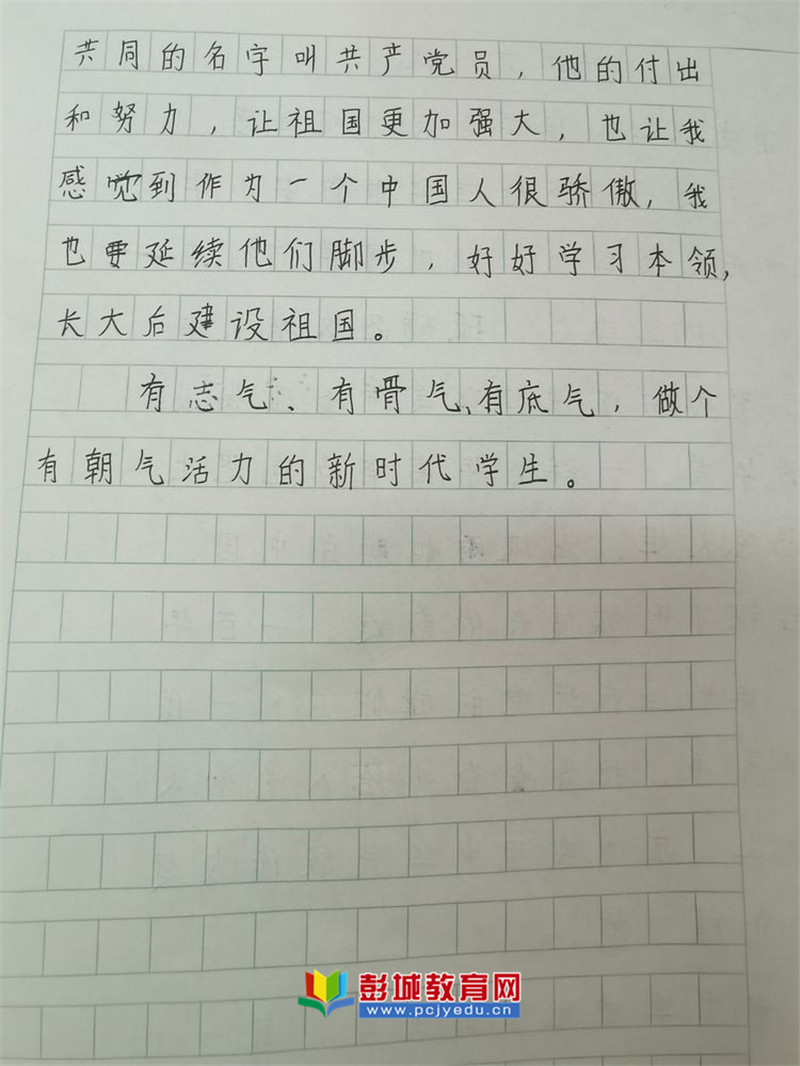 共同的名字叫共产党员，他的付出
和努力，让祖国更加强大，也让我
感觉到作为一个中国人很骄傲，我
也要延续他们脚步，好好学习本领，
长大后建设祖国。
有志气、有骨气、有底气，做个
有朝气活力的新时代学生。
彭城教育网
www.pcjyedu.cn